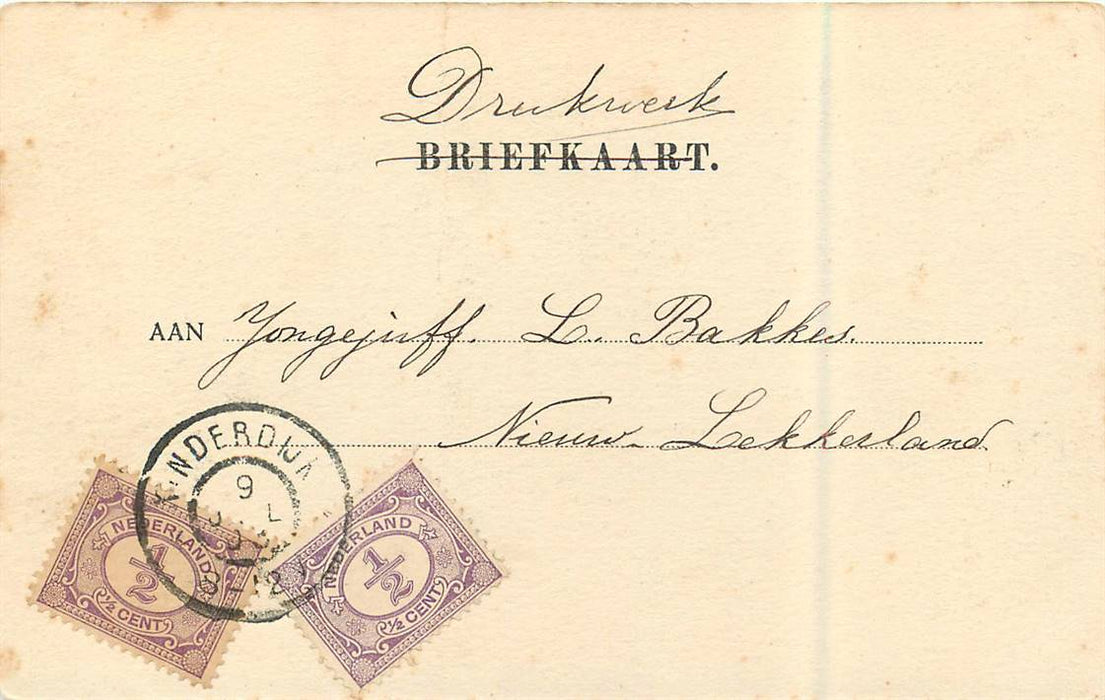 Drukwerk
BRIEFKAART.
AAN Jongejuff. L. Bakker.
Nieuw-Lekkerland
KINDERDIJK
9
8-12
NEDERLAND
1/2
1/2 CENT
NEDERLAND
1/2
1/2 CENT